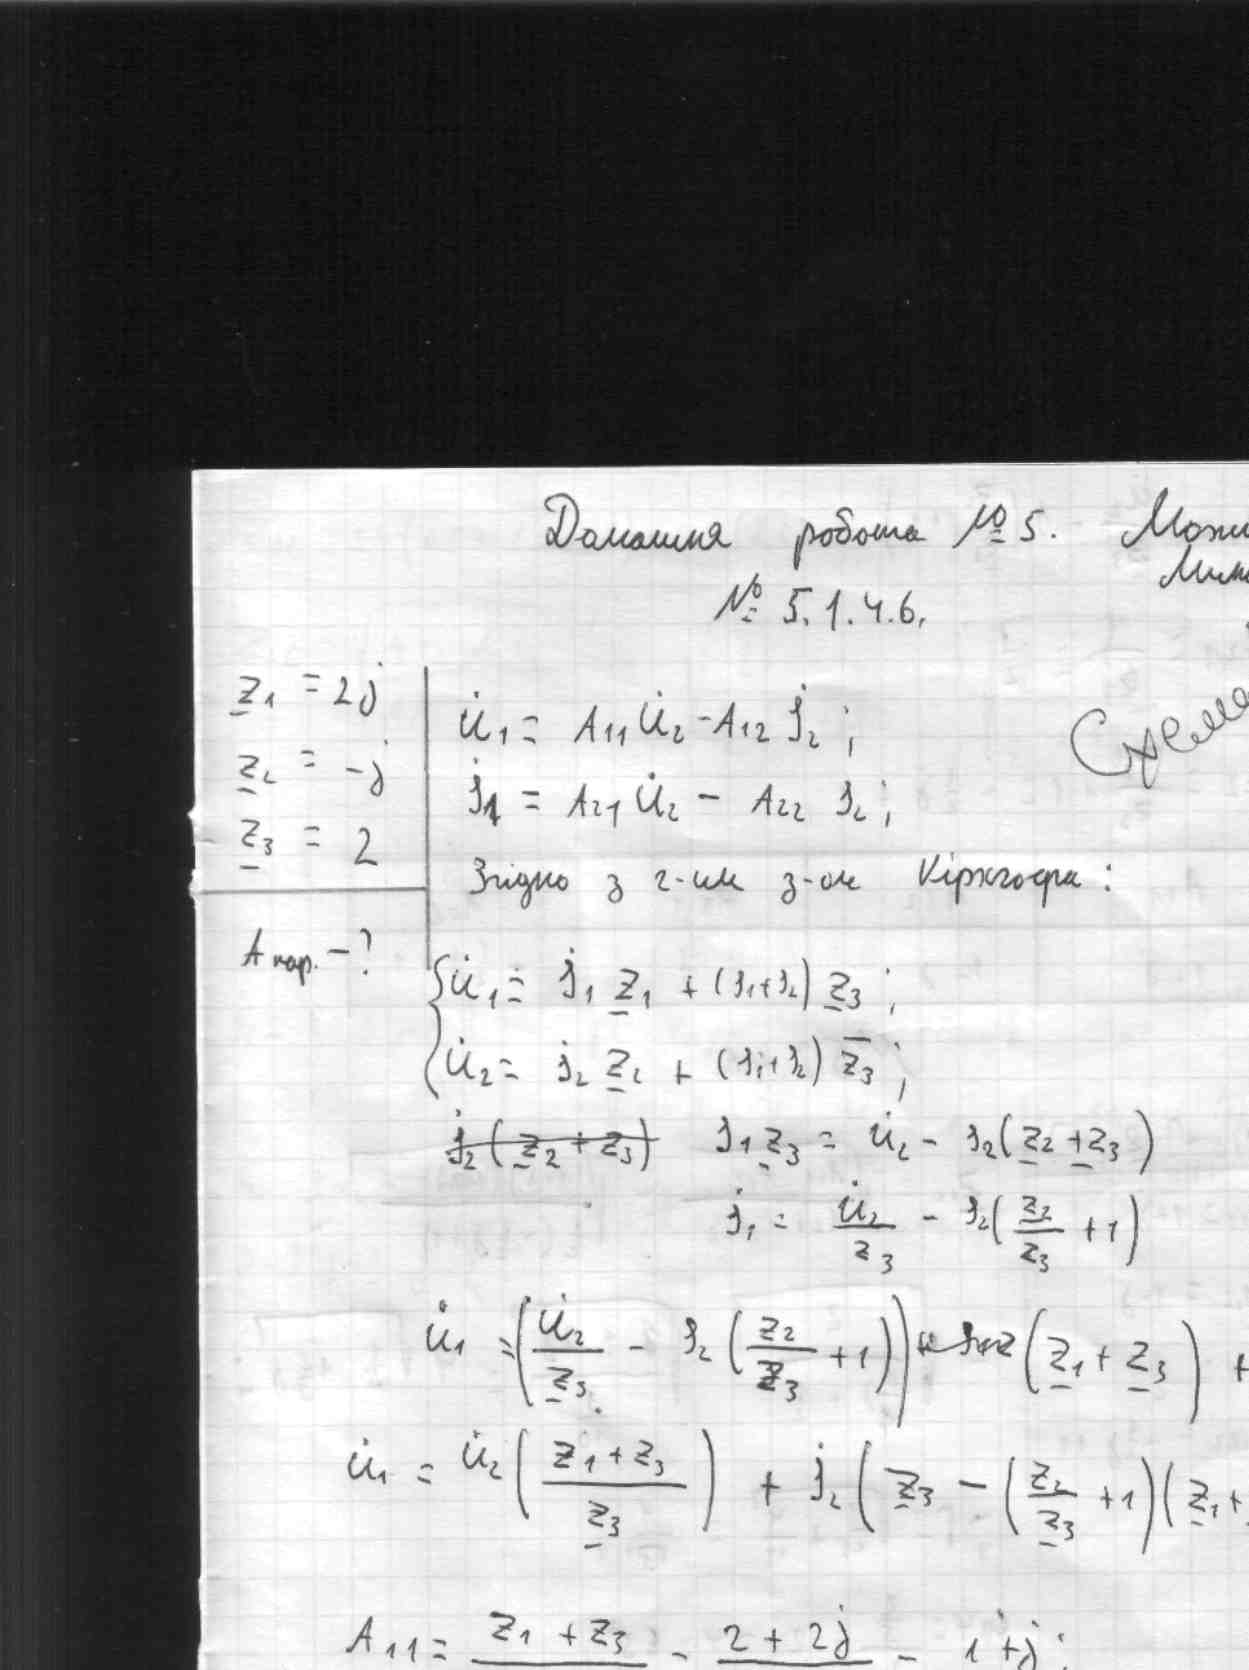 Домашня робота № 5.
№ 5.1.4.6.
Z1 = 2j
Z2 = -j
Z3 = 2
A пар. - ?
U̇1 = A11 U̇2 - A12 İ2 ;
İ1 = A21 U̇2 - A22 I2 ;
Схема
Згідно з 2-им з-ом Кірхгофа :
{ U̇1 = İ1 Z1 + (I1+I2) Z3 ;
U̇2 = İ2 Z2 + (I1+I2) Z3 ;
I1 Z3 = U̇2 - I2 (Z2 + Z3)
İ1 = U̇2/Z3 - I2 (Z2/Z3 + 1)
U̇1 = (U̇2/Z3 - I2 (Z2/Z3 + 1)) (Z1 + Z3) +
U̇1 = U̇2 ((Z1 + Z3)/Z3) + İ2 (Z3 - (Z2/Z3 + 1)(Z1 +
A11 = Z1 + Z3 = 2 + 2j = 1 + j ;